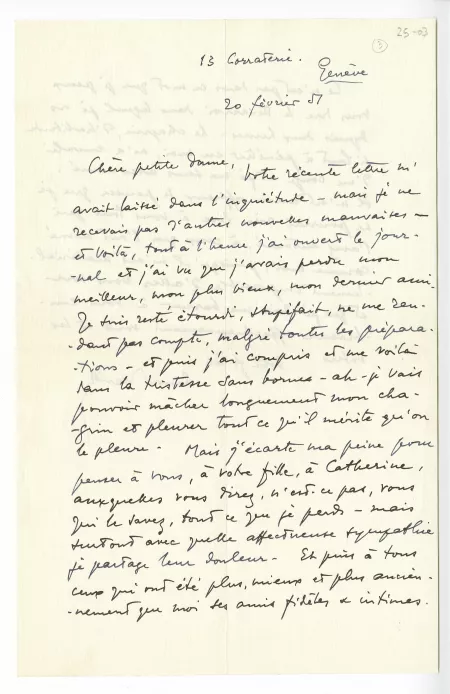 25-03
3
13 Corraterie.
Genève
20 février 51
Chère petite Dame, Votre récente lettre m'
avait laissé dans l'inquiétude – mais je ne
recevais pas d'autres nouvelles mauvaises –
et voilà, tout à l'heure j'ai ouvert le jour-
-nal et j'ai vu que j'avais perdu mon
meilleur, mon plus vieux, mon dernier ami.
Je suis resté étourdi, stupéfait, ne me ren-
-dant pas compte, malgré toutes les prépara-
-tions – et puis j'ai compris et me voilà
dans la tristesse sans bornes – ah – je vais
pouvoir mâcher longuement mon cha-
-grin et pleurer tout ce qu'il mérite qu'on
le pleure – Mais j'écarte ma peine pour
penser à vous, à votre fille, à Catherine,
auxquelles vous direz, n'est-ce pas, vous
qui le savez, tout ce que je perds – mais
surtout avec quelle affectueuse sympathie
je partage leur douleur – Et puis à tous
ceux qui ont été plus, mieux et plus ancien-
-nement que moi ses amis fidèles & intimes.